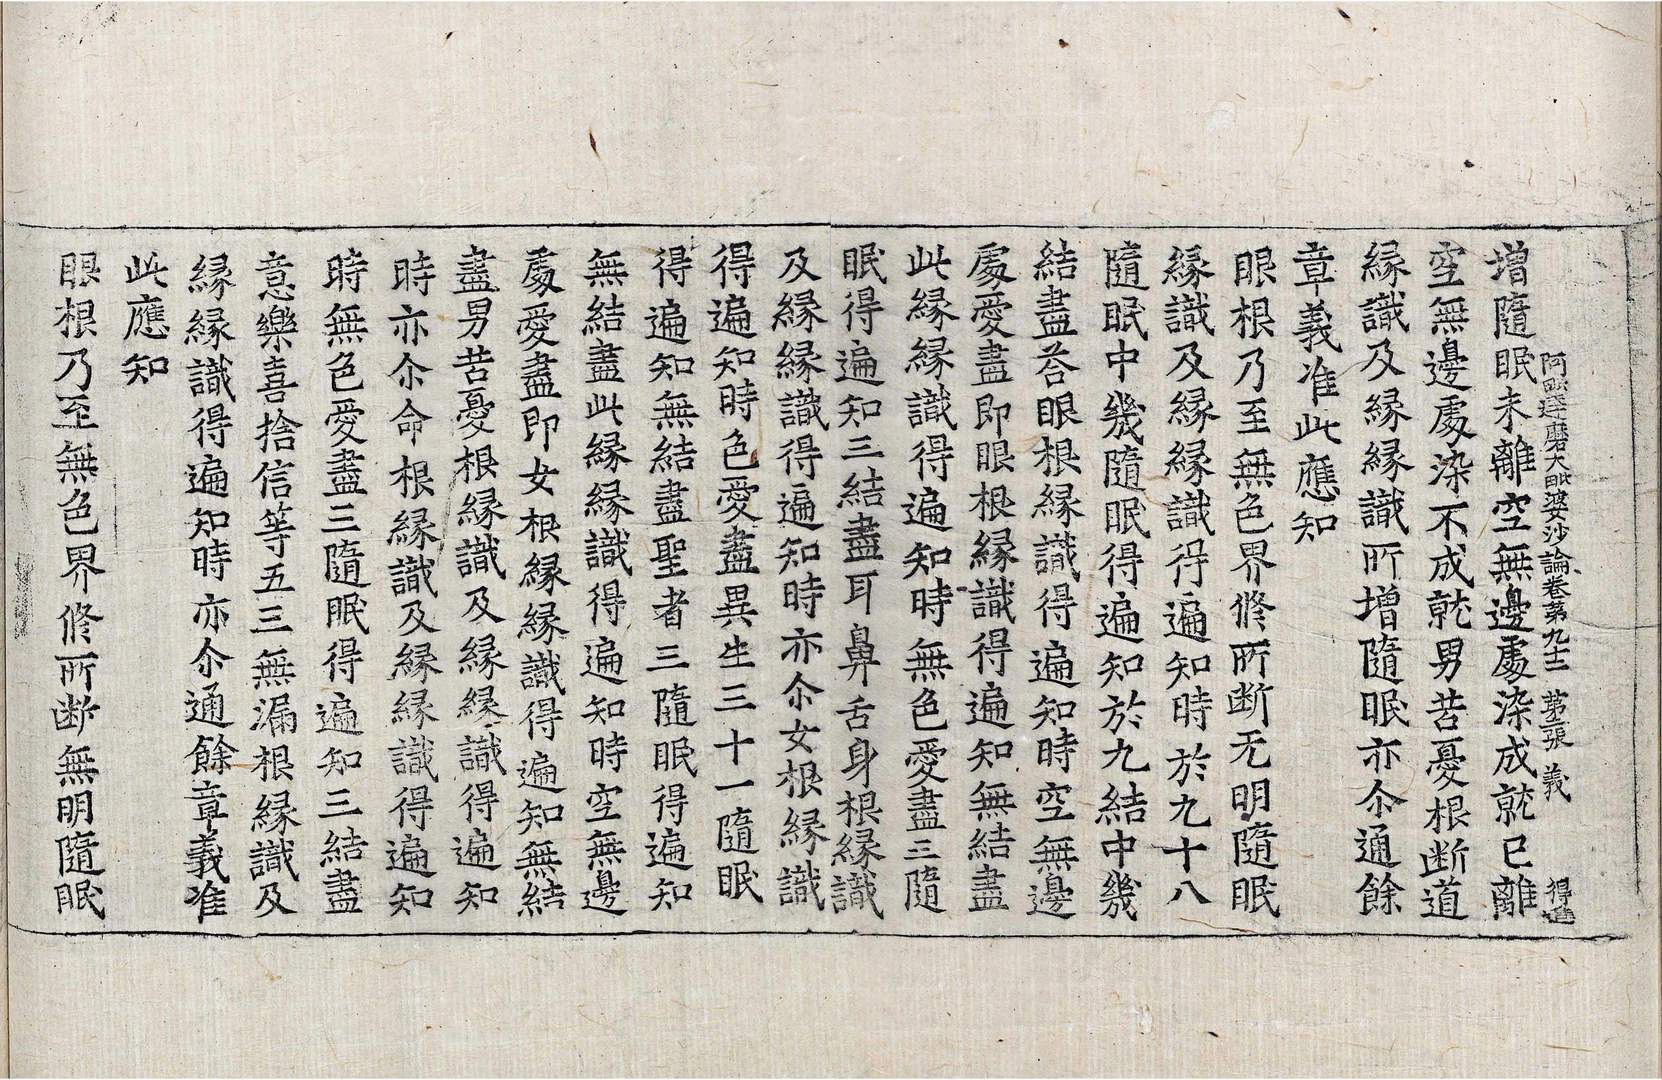 阿毗達磨大毗婆沙論卷第九十二 第三張 義 得進
增隨眠未離空無邊處染成就已離
空無邊處染不成就男苦憂根断道
緣識及緣緣識所增隨眠亦尒通餘
章義准此應知
眼根乃至無色界修所断无明隨眠
緣識及緣緣識得遍知時於九十八
隨眠中幾隨眠得遍知於九結中幾
結盡荅眼根緣識得遍知時空無邊
處愛盡即眼根緣識得遍知無結盡
此緣緣識得遍知時無色愛盡三隨
眠得遍知三結盡耳鼻舌身根緣識
及緣緣識得遍知時亦尒女根緣識
得遍知時色愛盡異生三十一隨眠
得遍知無結盡聖者三隨眠得遍知
無結盡此緣緣識得遍知時空無邊
處愛盡即女根緣緣識得遍知無結
盡男苦憂根緣識及緣緣識得遍知
時亦尒命根緣識及緣緣識得遍知
時無色愛盡三隨眠得遍知三結盡
意樂喜捨信等五三無漏根緣識及
緣緣識得遍知時亦尒通餘章義准
此應知
眼根乃至無色界修所断無明隨眠